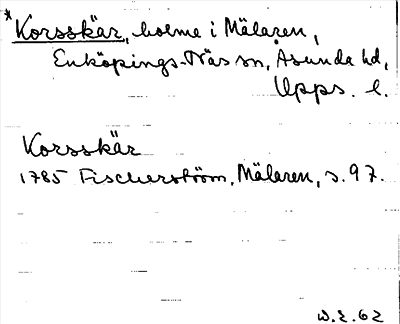 *Korsskär, holme i Mälaren,
Enköpings-Näs sn, Åsunda hd,
Upps. l.
Korsskär
1785 Fischerström, Mälaren, s. 97.
W.E. 62